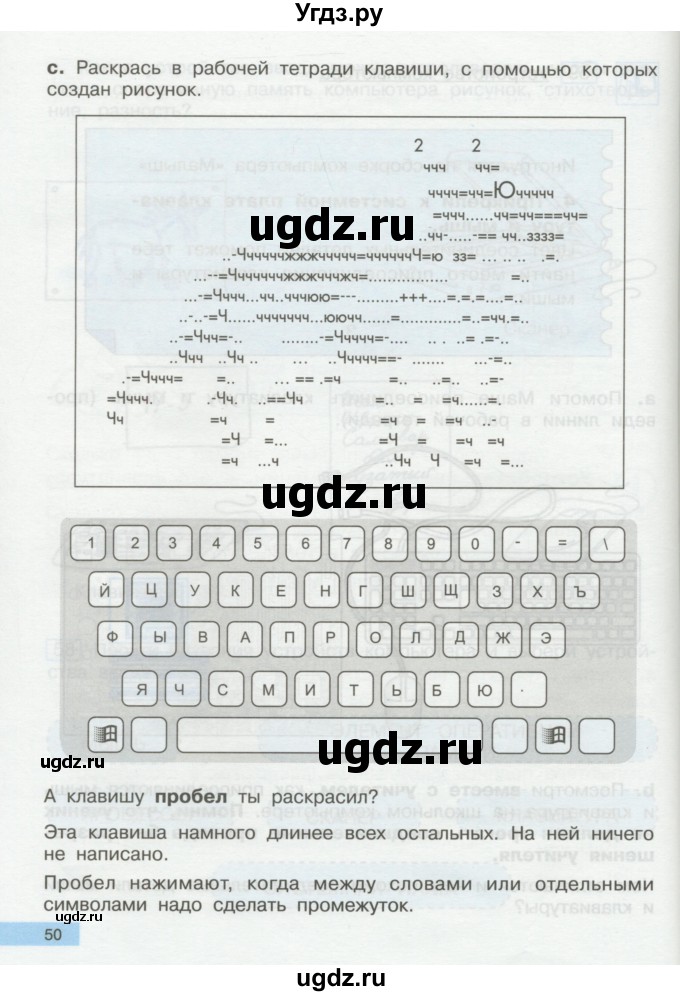 Угдз.ру
с. Раскрась в рабочей тетради клавиши, с помощью которых
создан рисунок.
2 2
ччч чч=
чччч=чч=Юччччч
=ччч......чч=чч===чч=
..чч- -== чч..зззз=
..-Чччччжжжччччч=ччччччЧ=ю зз= ... .. .. .=.
...-=Чччччжжжчччжч=........................... =..
...-=Чччч...чч..чччюю=---.........+++....=.=.=....=..
-..-=Ч......ччччччч...юючч.....=................=..=чч.=..
..-=Ччч=-.. ........-=Ччччч=-.... .. . .= .=-..
..Ччч ..Чч .. .... ..Чччч==- ....... ....-=..
.-=Чччч= =.. ... == .=ч =.. ..=.. ..=-
=Чччч. -Чч. ..==Чч =.. =ч.....=.
Чч =ч = =ч = =ч ..-
=Ч =... =Ч = =ч =ч
=ч ...ч ..Чч Ч =ч =...
ugdz.ru
ugdz.ru
1 2 3 4 5 6 7 8 9 0 - = \
Й Ц У К Е Н Г Ш Щ З Х Ъ
Ф Ы В А П Р О Л Д Ж Э
Я Ч С М И Т Ь Б Ю .
ugdz.ru
ugdz.ru
А клавишу пробел ты раскрасил?
Эта клавиша намного длиннее всех остальных. На ней ничего
не написано.
Пробел нажимают, когда между словами или отдельными
символами надо сделать промежуток.
ugdz.ru
50
ugdz.ru